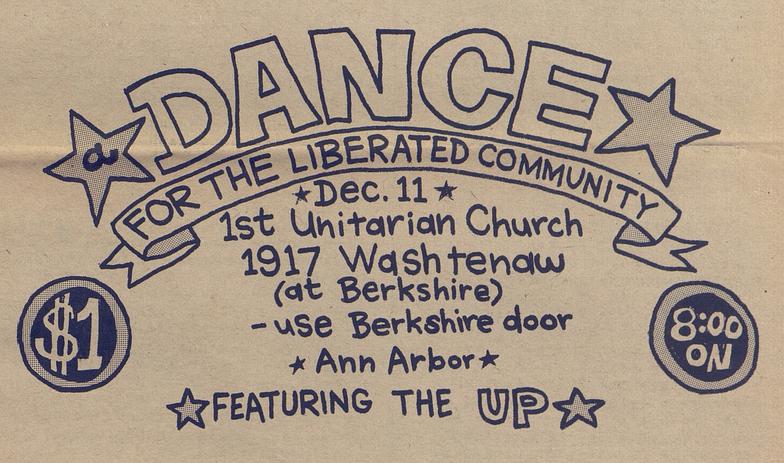 a DANCE
FOR THE LIBERATED COMMUNITY
Dec. 11
1st Unitarian Church
1917 Washtenaw
(at Berkshire)
- use Berkshire door
Ann Arbor
$1
8:00
ON
FEATURING THE UP